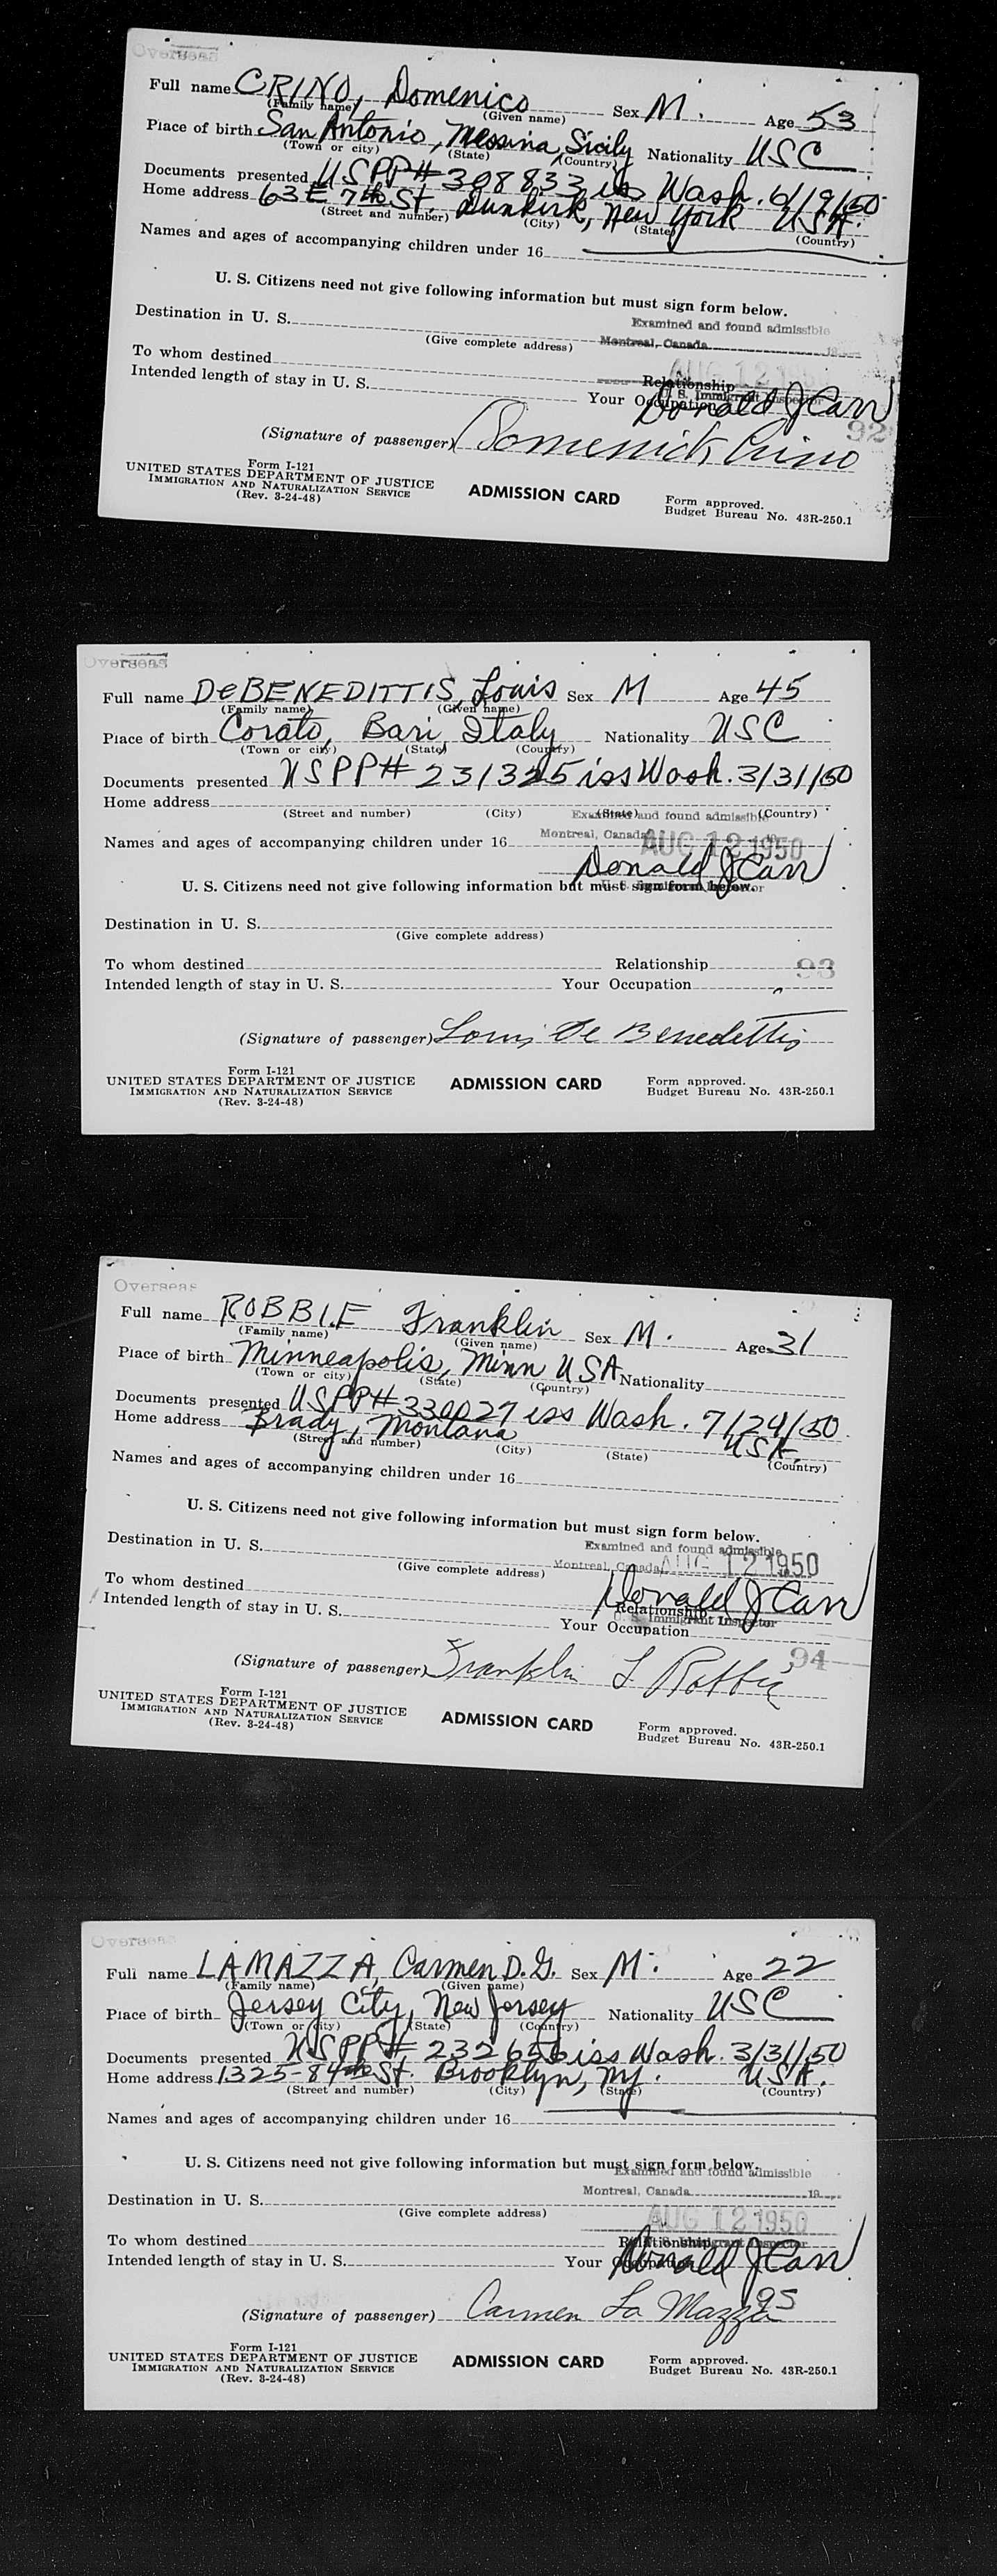 Overseas
Full name CRINO, Domenico Sex M. Age 53
(Family name) (Given name)
Place of birth San Antonio, Messina, Sicily Nationality USC
(Town or city) (State) (Country)
Documents presented USPP# 308833 iss Wash. 6/19/50
Home address 63 E 7th St. Dunkirk, New York USA.
(Street and number) (City) (State) (Country)
Names and ages of accompanying children under 16
U. S. Citizens need not give following information but must sign form below.
Examined and found admissible
Destination in U. S.
(Give complete address) Montreal, Canada 19
AUG 12 1950
To whom destined Relationship
U. S. Immigrant Inspector
Intended length of stay in U. S. Your Occupation Donald J Carr
92
(Signature of passenger) Domenick Crino
Form I-121
UNITED STATES DEPARTMENT OF JUSTICE
IMMIGRATION AND NATURALIZATION SERVICE
(Rev. 3-24-48)
ADMISSION CARD
Form approved.
Budget Bureau No. 43R-250.1
Overseas
Full name DeBENEDITTIS, Louis Sex M Age 45
(Family name) (Given name)
Place of birth Corato, Bari, Italy Nationality USC
(Town or city) (State) (Country)
Documents presented USPP# 231325 iss Wash. 3/31/50
Home address
(Street and number) (City) (State) (Country)
Examined and found admissible
Montreal, Canada 19
Names and ages of accompanying children under 16 AUG 12 1950
Donald J Carr
U. S. Citizens need not give following information but must sign form below.
U. S. Immigrant Inspector
Destination in U. S.
(Give complete address)
To whom destined Relationship 93
Intended length of stay in U. S. Your Occupation
(Signature of passenger) Louis De Benedittis
Form I-121
UNITED STATES DEPARTMENT OF JUSTICE
IMMIGRATION AND NATURALIZATION SERVICE
(Rev. 3-24-48)
ADMISSION CARD
Form approved.
Budget Bureau No. 43R-250.1
Overseas
Full name ROBBIE Franklin Sex M. Age 31
(Family name) (Given name)
Place of birth Minneapolis, Minn USA Nationality
(Town or city) (State) (Country)
Documents presented USPP# 330027 iss Wash. 7/24/50.
Home address Brady, Montana USA.
(Street and number) (City) (State) (Country)
Names and ages of accompanying children under 16
U. S. Citizens need not give following information but must sign form below.
Examined and found admissible
Destination in U. S.
(Give complete address) Montreal, Canada AUG 12 1950
To whom destined Donald J Carr
Relationship
U. S. Immigrant Inspector
Intended length of stay in U. S. Your Occupation
94
(Signature of passenger) Franklin L Robbie
Form I-121
UNITED STATES DEPARTMENT OF JUSTICE
IMMIGRATION AND NATURALIZATION SERVICE
(Rev. 3-24-48)
ADMISSION CARD
Form approved.
Budget Bureau No. 43R-250.1
Overseas
Full name LAMAZZA, Carmen D. G. Sex M. Age 22
(Family name) (Given name)
Place of birth Jersey City, New Jersey Nationality USC
(Town or city) (State) (Country)
Documents presented USPP# 232656 iss Wash. 3/31/50
Home address 1325-84th St. Brooklyn, NY. USA.
(Street and number) (City) (State) (Country)
Names and ages of accompanying children under 16
U. S. Citizens need not give following information but must sign form below.
Examined and found admissible
Montreal, Canada 19
Destination in U. S.
(Give complete address) AUG 12 1950
To whom destined Relationship
U. S. Immigrant Inspector
Intended length of stay in U. S. Your Occupation Donald J Carr
95
(Signature of passenger) Carmen La Mazza
Form I-121
UNITED STATES DEPARTMENT OF JUSTICE
IMMIGRATION AND NATURALIZATION SERVICE
(Rev. 3-24-48)
ADMISSION CARD
Form approved.
Budget Bureau No. 43R-250.1